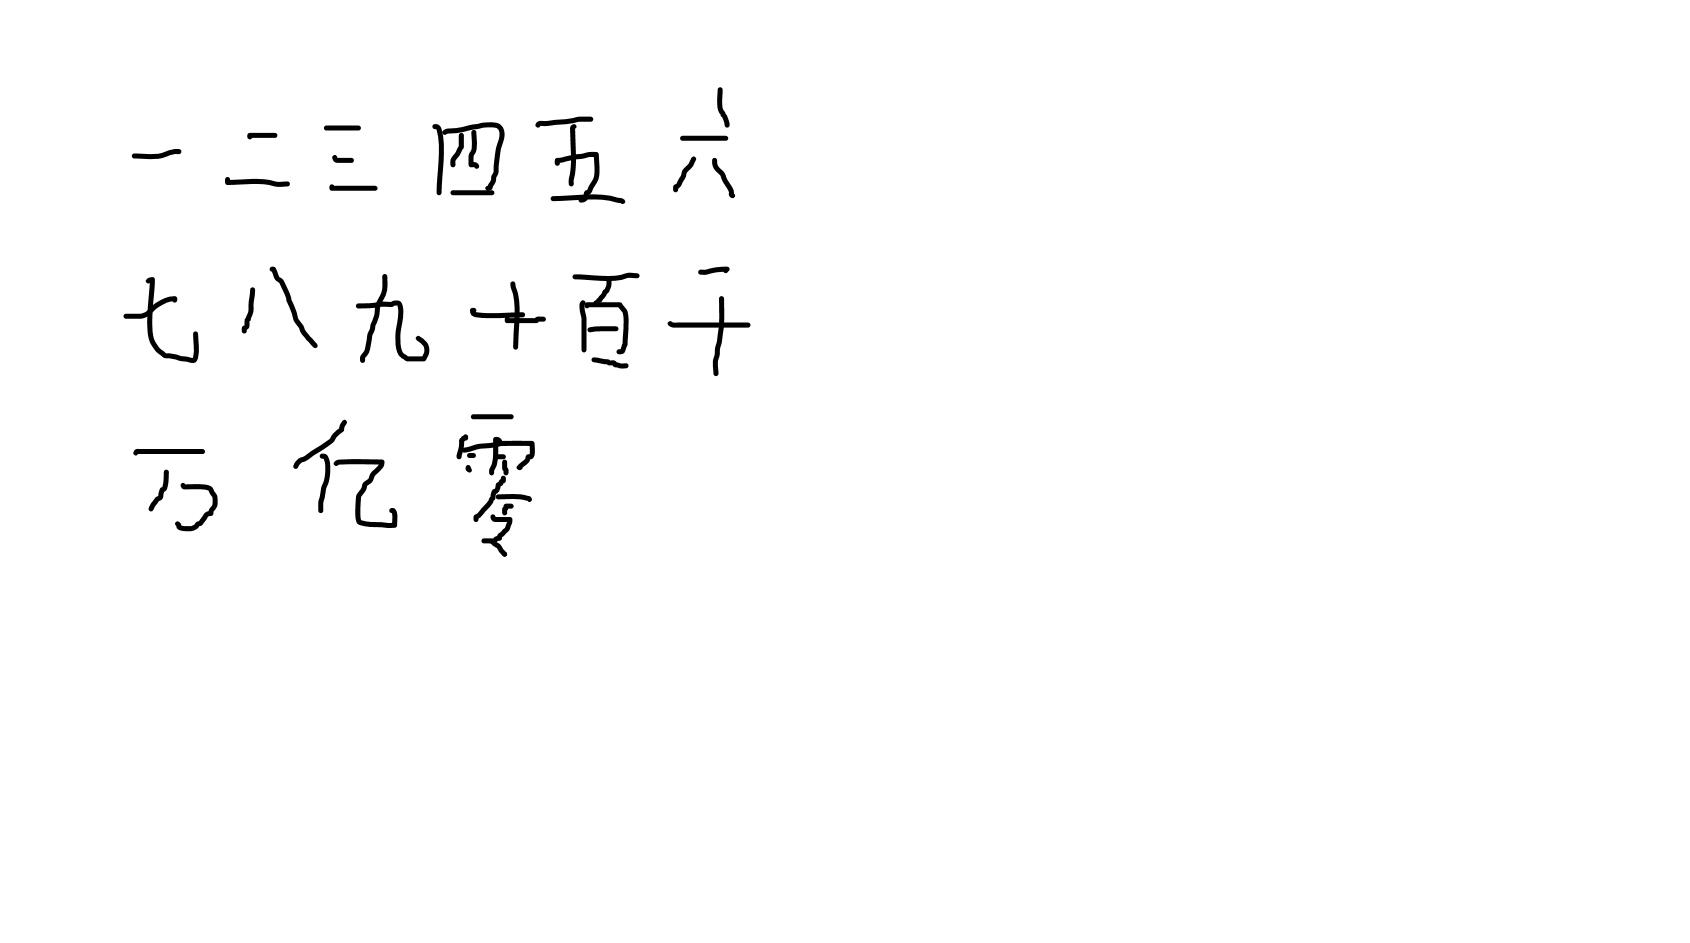 一二三四五六
七八九十百千
万亿零